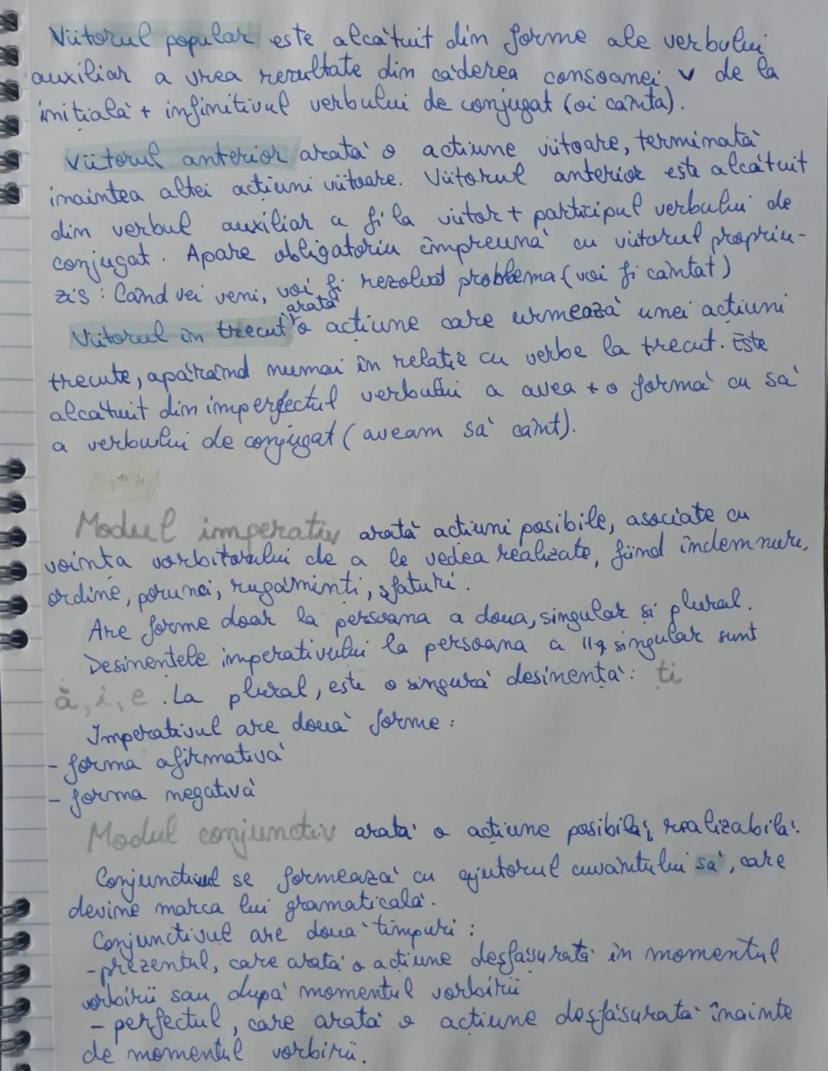 Viitorul popular este alcătuit din forme ale verbului
auxiliar a vrea rezultate din căderea consoanei v de la
inițială + infinitivul verbului de conjugat (oi cânta).
Viitorul anterior arată o acțiune viitoare, terminată
înaintea altei acțiuni viitoare. Viitorul anterior este alcătuit
din verbul auxiliar a fi la viitor + participul verbului de
conjugat. Apare obligatoriu împreună cu viitorul propriu-
zis: Când vei veni, voi fi rezolvat problema (voi fi cântat)
Viitorul în trecut arată o acțiune care urmează unei acțiuni
trecute, apărând numai în relație cu verbe la trecut. Este
alcătuit din imperfectul verbului a avea + o formă cu să
a verbului de conjugat (aveam să cânt).
Modul imperativ arată acțiuni posibile, asociate cu
voința vorbitorului de a le vedea realizate, fiind îndemnuri,
ordine, porunci, rugăminți, sfaturi.
Are forme doar la persoana a doua, singular și plural.
Desinențele imperativului la persoana a II-a singular sunt
ă, i, e. La plural, este o singură desinență: ți
Imperativul are două forme:
- forma afirmativă
- forma negativă
Modul conjunctiv arată o acțiune posibilă, realizabilă.
Conjunctivul se formează cu ajutorul cuvântului să, care
devine marca lui gramaticală.
Conjunctivul are două timpuri:
- prezentul, care arată o acțiune desfășurată în momentul
vorbirii sau după momentul vorbirii
- perfectul, care arată o acțiune desfășurată înainte
de momentul vorbirii.